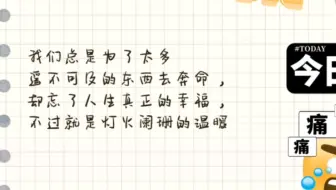 我们总是为了太多
遥不可及的东西去奔命，
却忘了人生真正的幸福，
不过就是灯火阑珊的温暖
#TODAY
今日
痛
痛